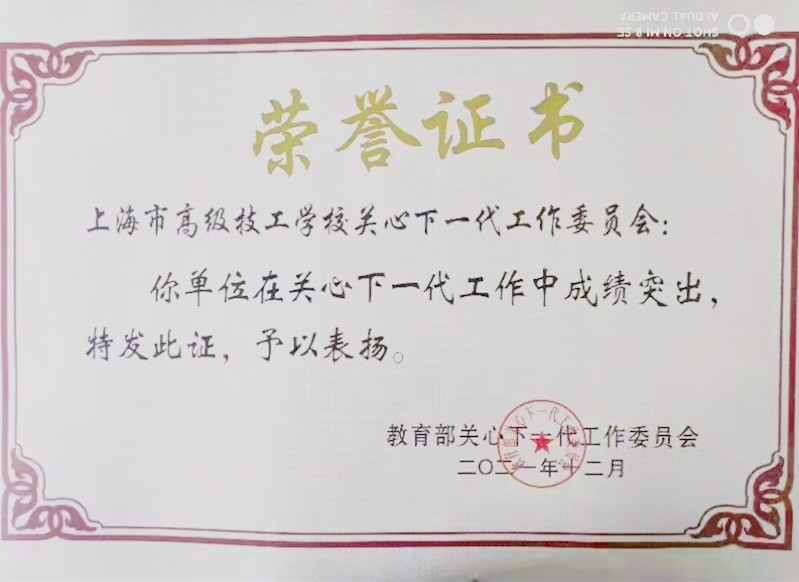 荣誉证书
上海市高级技工学校关心下一代工作委员会：
你单位在关心下一代工作中成绩突出，
特发此证，予以表扬。
教育部关心下一代工作委员会
二〇二一年十二月
SHOT ON MI 8 SE
AI DUAL CAMERA